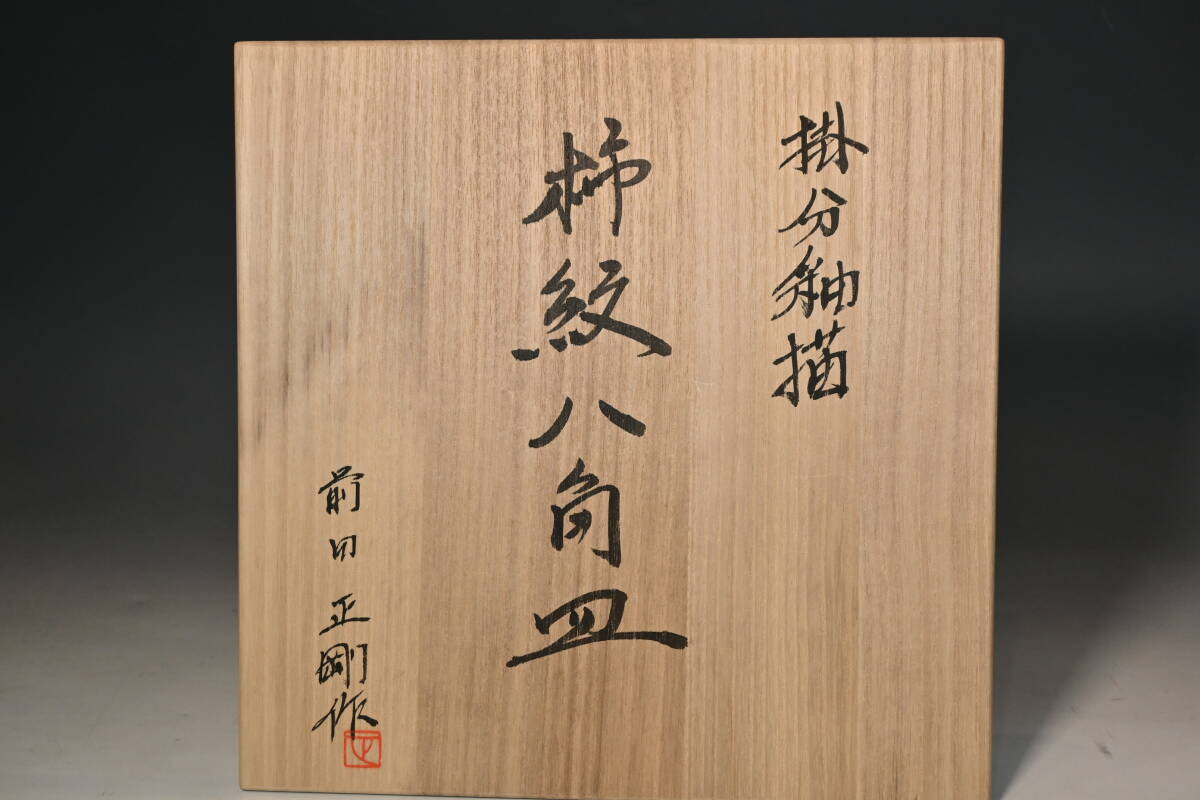 掛分釉描
柿紋八角皿
前田正剛作
正